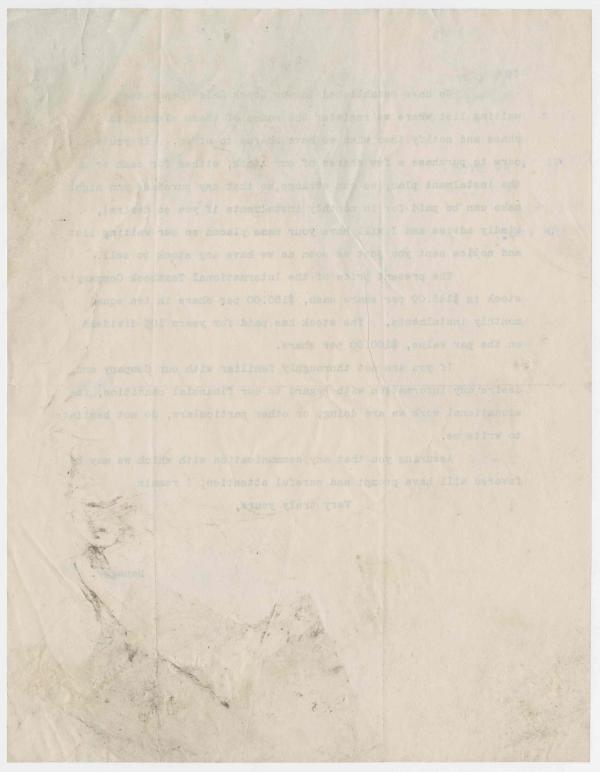 We have established in our Stock Sales Department a
waiting list where we register the names of those wishing to
chase and notify them when we have shares to offer. If you
care to purchase a few shares of our stock, either for cash or on
the instalment plan, we can arrange so that any purchase you might
make can be paid for in monthly instalments if you so desire,
kindly advise and I will have your name placed on our waiting list
and notice sent you just as soon as we have any stock to sell.
The present price of the International Textbook Company's
stock is $145.00 per share cash, $150.00 per share in ten equal
monthly instalments. The stock has paid for years 10% dividend
on the par value, $100.00 per share.
If you are not thoroughly familiar with our Company and
desire any information with regard to our financial condition, the
educational work we are doing, or other particulars, do not hesitate
to write me.
Assuring you that any communication with which we may be
favored will have prompt and careful attention, I remain
Very truly yours,
Manager